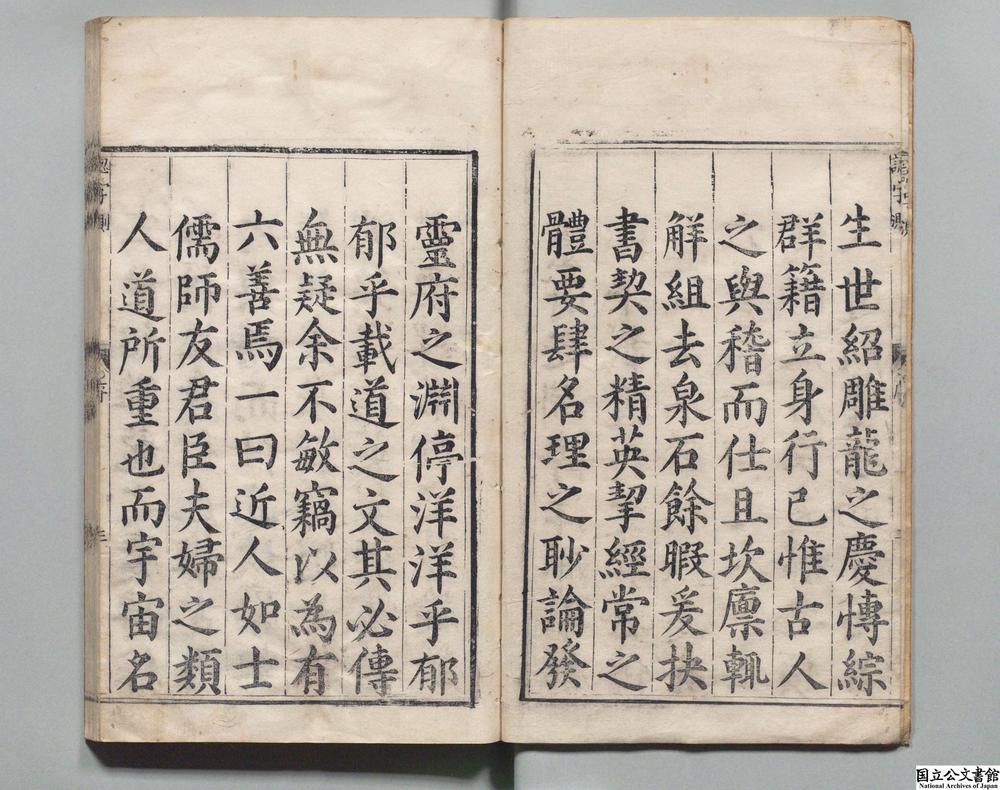 生世紹雕龍之慶愽綜
群籍立身行已惟古人
之與稽而仕且坎廩輒
觧組去泉石餘暇爰抉
書契之精英挈經常之
體要肆名理之眇論發
靈府之淵停洋洋乎郁
郁乎載道之文其必傳
無疑余不敏竊以為有
六善焉一曰近人如士
儒師友君臣夫婦之類
人道所重也而宇宙名
国立公文書館
National Archives of Japan